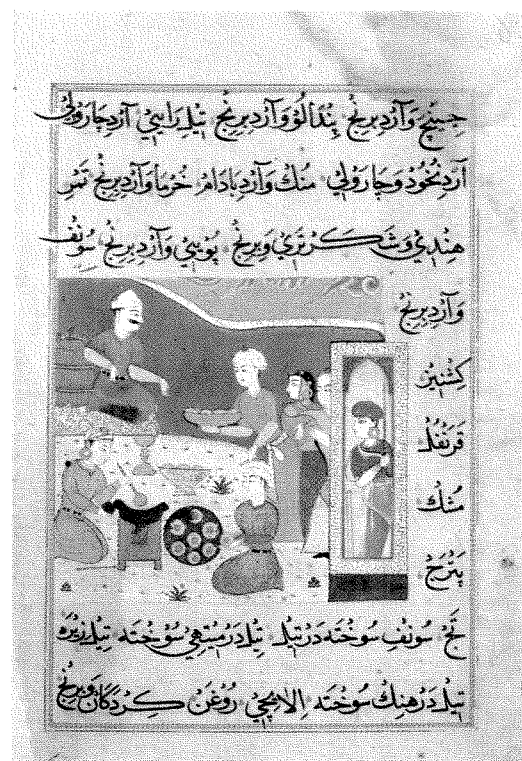 وَآرْدِ بِرِنْج پِنْدَالُوْ وَآرْدِ بِرِنْج تِيلِ رَائِيْ آرْدِ چَارَوْلِيْ
آرْدِ نُخُوْد وَچَارَوْلِيْ مُنْك وَآرْدِ بَادَامْ خُرْمَا وَآرْدِ بِرِنْج
هِنْدِيْ وَشَكَرْ تَرِيْ وَبِرِنْج وَآرْدِ بِرِنْج سُونْف
وَآرْدِ بِرِنْج
كِشْنِيْز
قَرَنْفُل
مُشْك
پَتْرَجْ
تَجْ سُونْفِ سُوْخْتَه دَرْ تِيلْ تِيلْ دَرْ مِيْتْهِيْ سُوْخْتَه تِيلْ زِيْرَه
تِيلْ دَرْ هِنْك سُوْخْتَه اِلَاچِيْ رُوْغَنْ كِرْدَكَان وَبِرِنْج